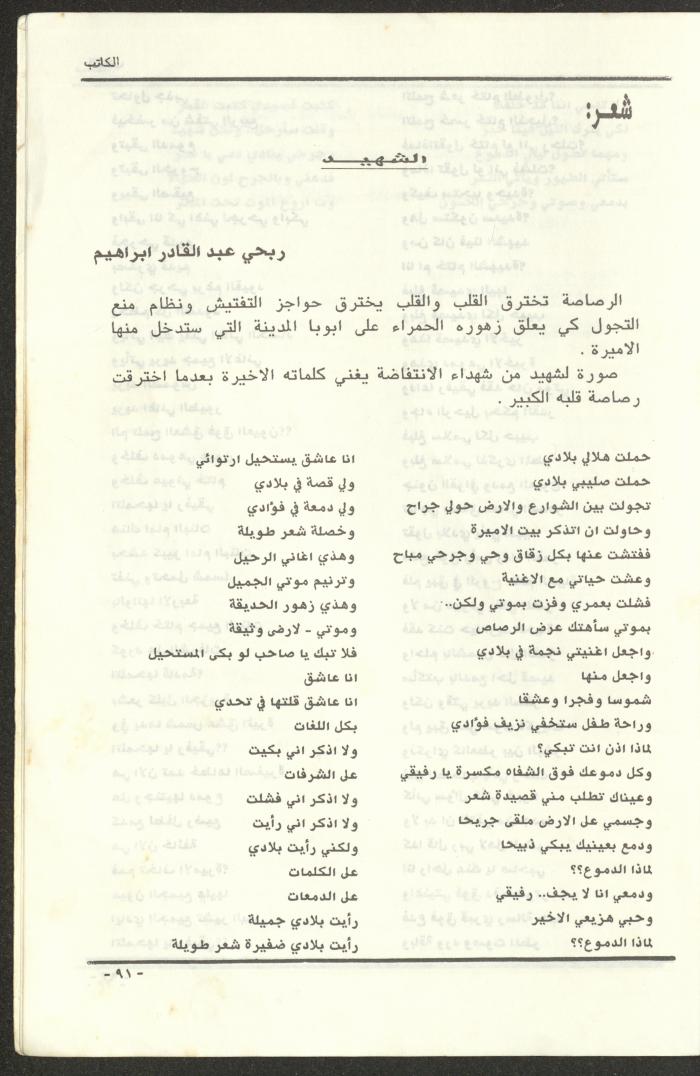 الكاتب
شعر:
الشهيد
ربحي عبد القادر ابراهيم
الرصاصة تخترق القلب والقلب يخترق حواجز التفتيش ونظام منع
التجول كي يعلق زهوره الحمراء على ابوبا المدينة التي ستدخل منها
الاميرة .
صورة لشهيد من شهداء الانتفاضة يغني كلماته الاخيرة بعدما اخترقت
رصاصة قلبه الكبير .
حملت هلالي بلادي
حملت صليبي بلادي
تجولت بين الشوارع والارض حولي جراح
وحاولت ان اتذكر بيت الاميرة
ففتشت عنها بكل زقاق وحي وجرحي مباح
وعشت حياتي مع الاغنية
فشلت بعمري وفزت بموتي ولكن..
بموتي سأهتك عرض الرصاص
واجعل اغنيتي نجمة في بلادي
واجعل منها
شموسا وفجرا وعشقا
وراحة طفل ستخفي نزيف فؤادي
لماذا اذن انت تبكي؟
وكل دموعك فوق الشفاه مكسرة يا رفيقي
وعيناك تطلب مني قصيدة شعر
وجسمي على الارض ملقى جريحا
ودمع بعينيك يبكي ذبيحا
لماذا الدموع؟؟
ودمعي انا لا يجف.. رفيقي
وحبي هزيعي الاخير
لماذا الدموع؟؟
انا عاشق يستحيل ارتوائي
ولي قصة في بلادي
ولي دمعة في فؤادي
وخصلة شعر طويلة
وهذي اغاني الرحيل
وترنيم موتي الجميل
وهذي زهور الحديقة
وموتي - لارضى وثيقة
فلا تبك يا صاحب لو بكى المستحيل
انا عاشق
انا عاشق قلتها في تحدي
بكل اللغات
ولا اذكر اني بكيت
على الشرفات
ولا اذكر اني فشلت
ولا اذكر اني رأيت
ولكني رأيت بلادي
على الكلمات
على الدمعات
رأيت بلادي جميلة
رأيت بلادي ضفيرة شعر طويلة
- ٩١ -